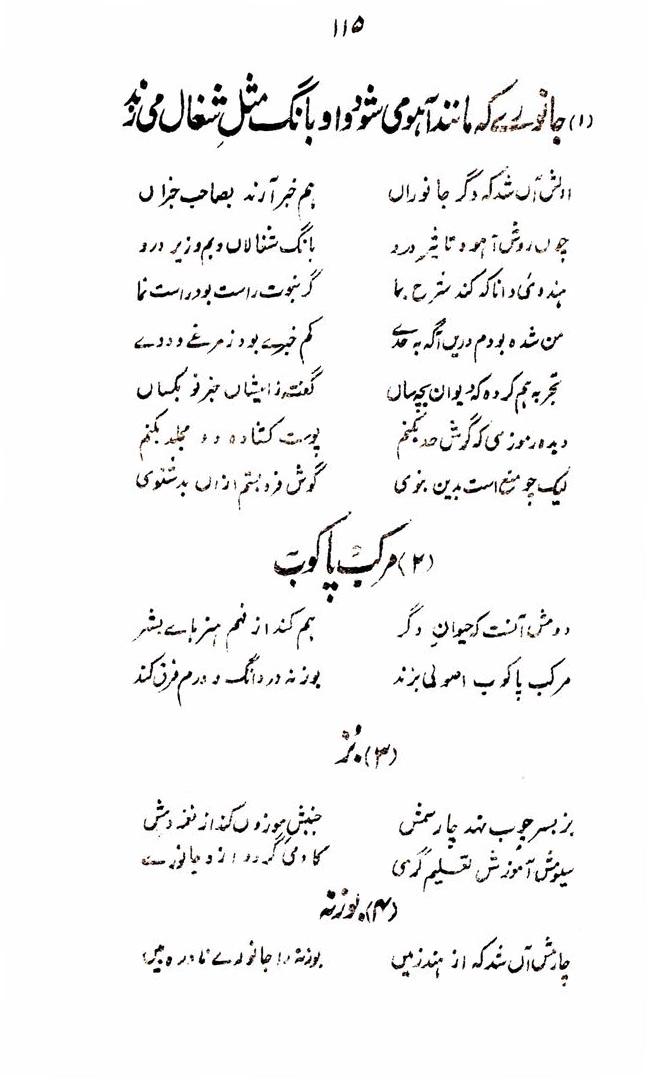 ۱۱۵
(۱) جانورے کہ مانند آہو می شود و او بانگ مثلِ شغال می زند
اولش آں شد کہ دگر جانوراں ہم خبر آرند بصاحب خبراں
چوں روش آہو و تاثیر درو بانگ شغالاں و بم و زیر درو
ہندوی دانا کہ کند شرح بما گر نبوت راست بود راست نما
من شدہ بودم دریں آگہ بحدے کم خبرے بود ز مرغے و ددے
تجربہ ہم کردہ کہ دیوان بچہاں گفتہ ز ایشاں خبر نو بکساں
دیدہ رموزی کہ گرش حد بکنم پوست کشادہ دو مجلد بکنم
لیک چو منع است بدین نبوی گوش فرو بستم ازاں بد شنوی
(۲) مرکب پاکوب
دومش آنست کہ حیوانِ دگر ہم کند از فہم ہنرہاے بشر
مرکب پاکوب اصولی بزند بوزنہ در دانگ و درم فرق کند
(۳) بُز
بز بسر چوب نہد چار سمش جنبشِ موزوں کند از نغمہ دمش
سیومش آموزش تعلیم گری کادمی گردد ازو جانورے
(۴) بوزنہ
چارمش آں شد کہ از ہند زمیں بوزنہ را جانورے نادرہ بیں